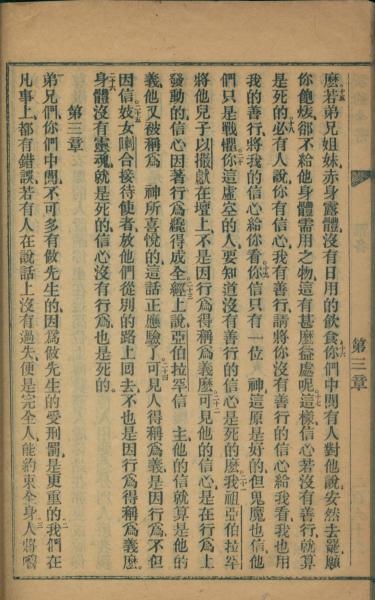 麽若弟兄姐妹赤身露體沒有日用的飲食你們中間有人對他說安然去罷願
你飽煖郤不給他身體需用之物這有甚麽益處呢這樣信心若沒有善行就算
是死的必有人說你有信心我有善行請將你沒有善行的信心給我看我也用
我的善行將我的信心給你看你信只有一位神這原是好的但鬼魔也信他
們只是戰懼你這虛空的人要知道沒有善行的信心是死的麽我祖亞伯拉罕
將他兒子以撒獻在壇上不是因行爲得稱爲義麽可見他的信心是在行爲上
發動的信心因著行爲纔得成全經上說亞伯拉罕信主他的信就算是他的
義他又被稱爲神所喜悅的這話正應驗了可見人得稱爲義是因行爲不但
因信妓女喇合接待使者放他們從別的路上回去不也是因行爲得稱爲義麽
身體沒有靈魂就是死的信心沒有行爲也是死的
第三章
弟兄們你們中間不可多有做先生的因爲做先生的受刑罰是更重的我們在
凡事上都有錯誤若有人在說話上沒有過失便是完全人能約束全身人將嚼
第三章